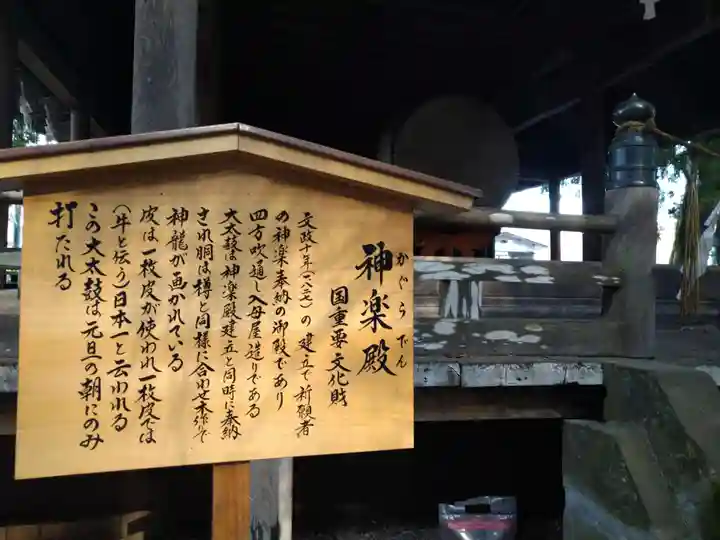 かぐらでん
神楽殿
国重要文化財
文政十年(一八二七)の建立で祈願者
の神楽奉納の御殿であり
四方吹通し入母屋造りである
大太鼓は神楽殿建立と同時に奉納
され胴は樽と同様に合わせ木作で
神龍が画かれている
皮は一枚皮が使われ一枚皮では
(牛と伝う)日本一と云われる
この大太鼓は元旦の朝にのみ
打たれる